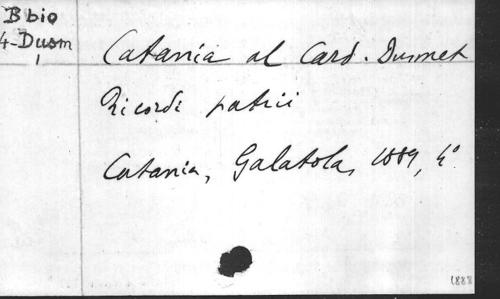 B bio
4-Dusm
1
Catania al Card. Dusmet
Ricordi patrii
Catania, Galatola, 1889, 4°
1888